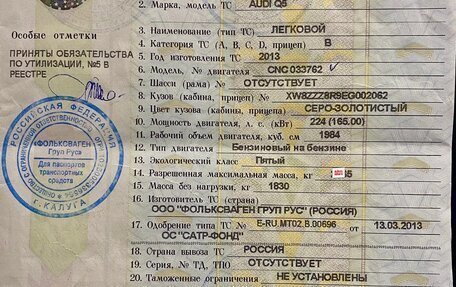 2. Марка, модель ТС AUDI Q5
Особые отметки
ПРИНЯТЫ ОБЯЗАТЕЛЬСТВА
ПО УТИЛИЗАЦИИ, №5 В
РЕЕСТРЕ
3. Наименование (тип ТС) ЛЕГКОВОЙ
4. Категория ТС (A, B, C, D, прицеп) B
5. Год изготовления ТС 2013
6. Модель, № двигателя CNC 033762
7. Шасси (рама) № ОТСУТСТВУЕТ
8. Кузов (кабина, прицеп) № XW8ZZZ8R9EG002062
9. Цвет кузова (кабины, прицепа) СЕРО-ЗОЛОТИСТЫЙ
10. Мощность двигателя, л. с. (кВт) 224 (165.00)
11. Рабочий объем двигателя, куб. см 1984
12. Тип двигателя Бензиновый на бензине
13. Экологический класс Пятый
14. Разрешенная максимальная масса, кг
15. Масса без нагрузки, кг 1830
16. Изготовитель ТС (страна)
ООО "ФОЛЬКСВАГЕН ГРУП РУС" (РОССИЯ)
17. Одобрение типа ТС № E-RU.MT02.B.00696 от 13.03.2013
ОС "САТР-ФОНД"
18. Страна вывоза ТС РОССИЯ
19. Серия, № ТД, ТПО ОТСУТСТВУЕТ
20. Таможенные ограничения НЕ УСТАНОВЛЕНЫ
РОССИЙСКАЯ ФЕДЕРАЦИЯ
«ФОЛЬКСВАГЕН
Груп Рус»
Для паспортов
транспортных
средств
Г. КАЛУГА